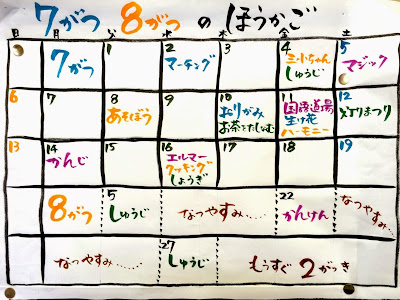 7がつ 8がつ のほうかご
日 月 火 水 木 金 土
7がつ
1
2
マーチング
3
4
三小ちゃん
しゅうじ
5
マジック
6
7
8
あそぼう
9
10
おりがみ
お茶をたしなむ
11
国語道場
生け花
ハーモニー
12
まつり
13
14
かんじ
15
16
エルマー
クッキング
しょうぎ
17
18
19
8がつ
5
しゅうじ
なつやすみ……
22
かんけん
なつやすみ…
なつやすみ……
27
しゅうじ
もうすぐ2がっき